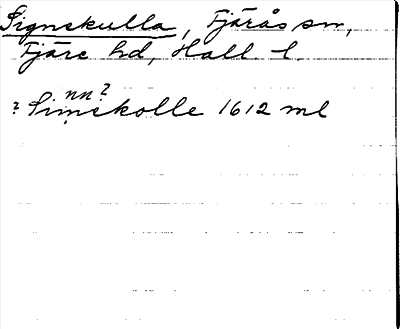 Signskulla, Fjärås sn,
Fjäre hd, Hall l.
nn?
? Simskolle 1612 ml